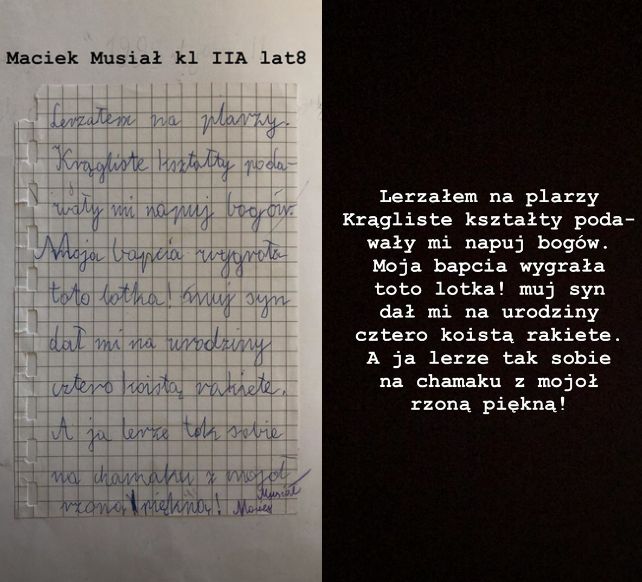 Maciek Musiał kl IIA lat8
Lerzałem na plarzy.
Krągliste kształty poda-
wały mi napuj bogów.
Moja bapcia wygrała
toto lotka! muj syn
dał mi na urodziny
cztero koistą rakiete.
A ja lerze tak sobie
na chamaku z mojoł
rzoną piękną!
Musiał
Maciek
Lerzałem na plarzy
Krągliste kształty poda-
wały mi napuj bogów.
Moja bapcia wygrała
toto lotka! muj syn
dał mi na urodziny
cztero koistą rakiete.
A ja lerze tak sobie
na chamaku z mojoł
rzoną piękną!